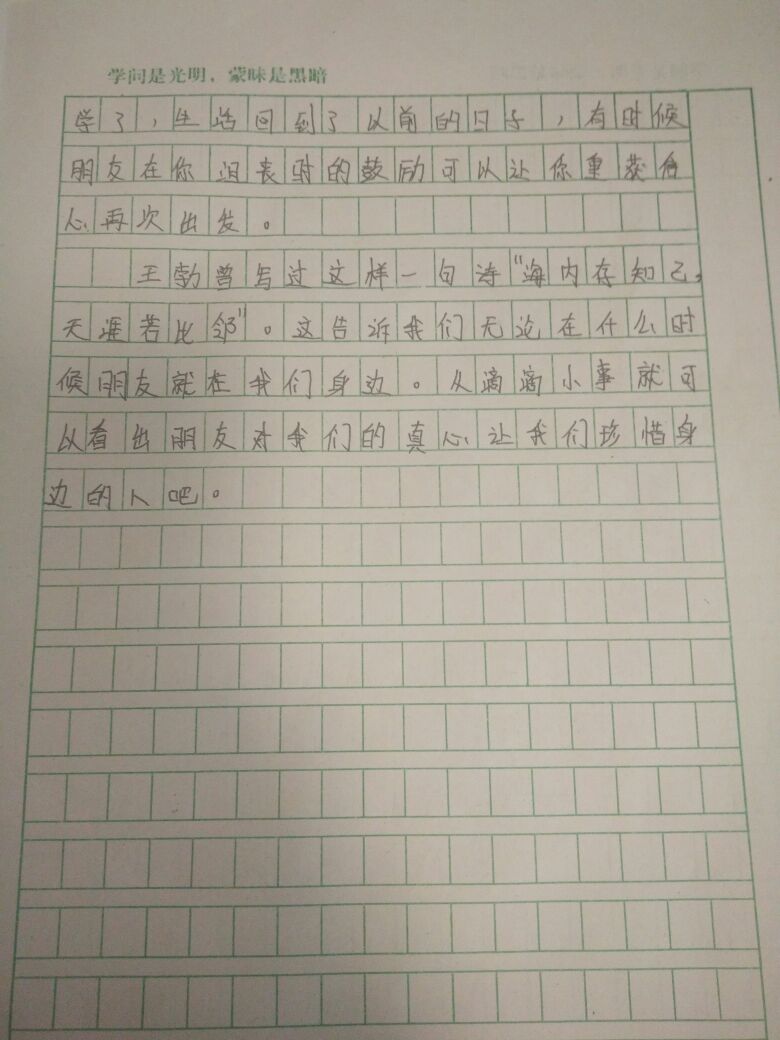 学问是光明，蒙昧是黑暗
学了，生活回到了以前的日子，有时候
朋友在你沮丧时的鼓励可以让你重获信
心再次出发。
王勃曾写过这样一句诗"海内存知己，
天涯若比邻"。这告诉我们无论在什么时
候朋友就在我们身边。从滴滴小事就可
以看出朋友对我们的真心让我们珍惜身
边的人吧。